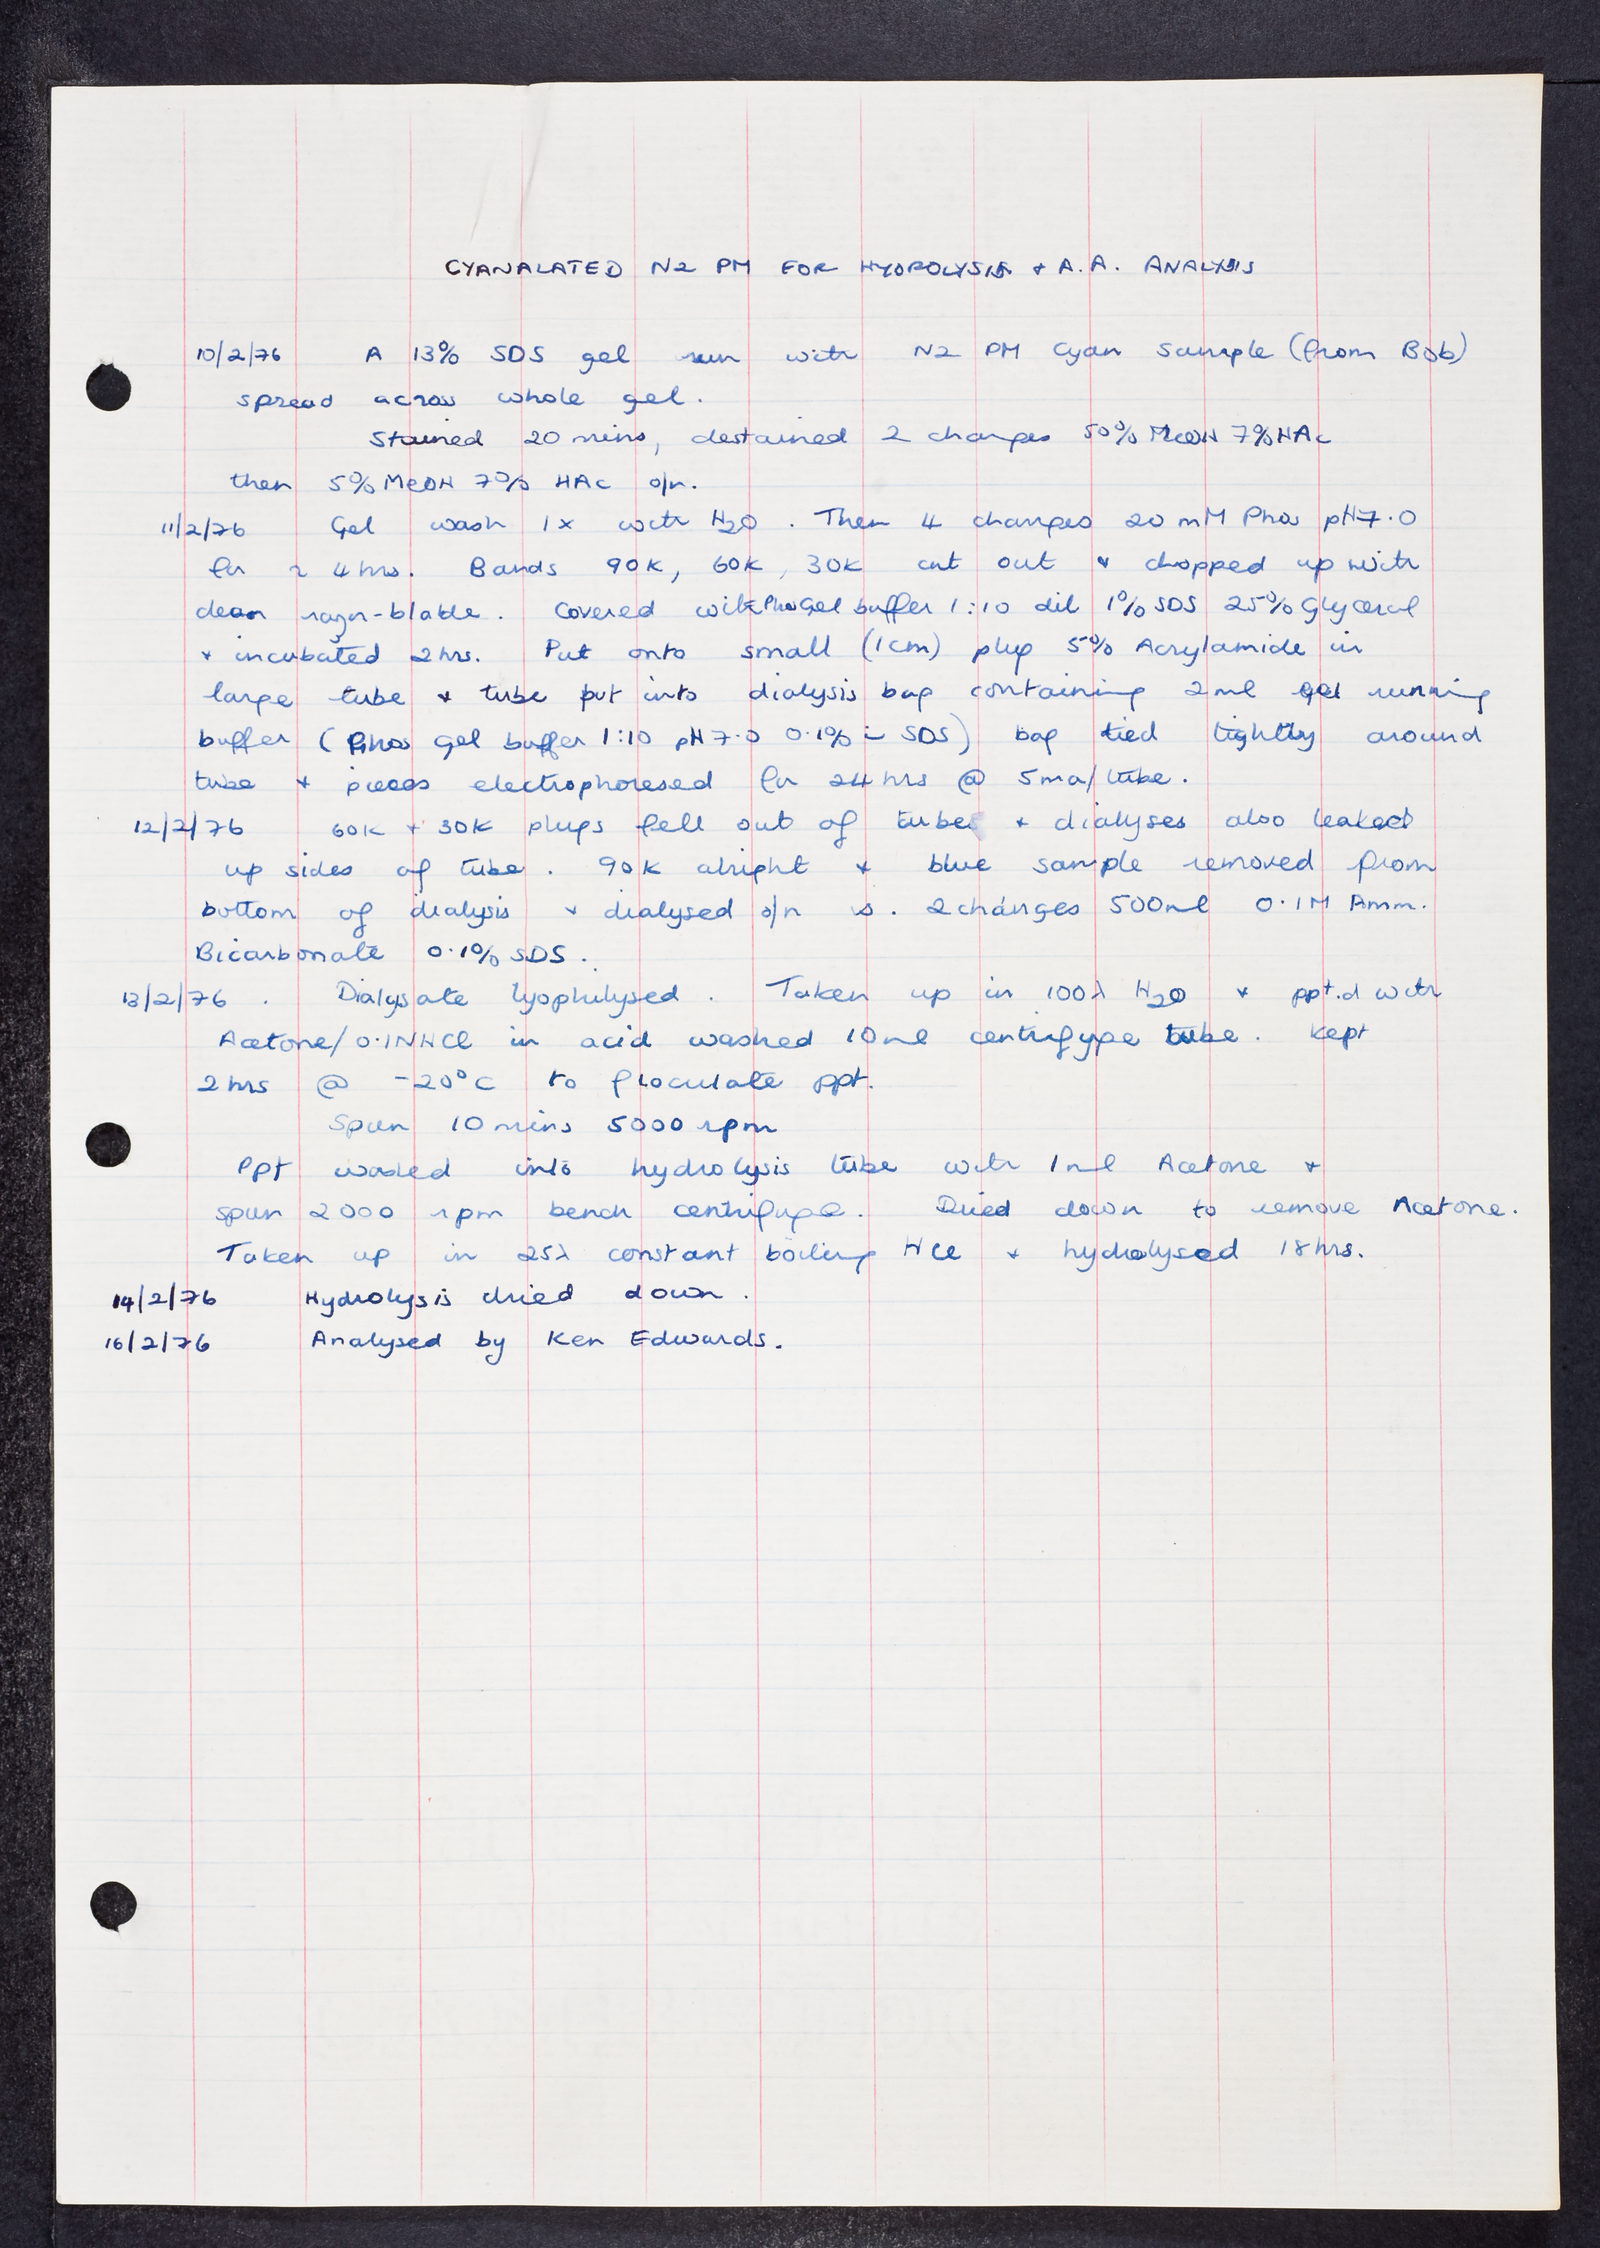 CYANALATED N2 PM FOR HYDROLYSIS + A.A. ANALYSIS
10/2/76 A 13% SDS gel run with N2 PM Cyan Sample (from Bob)
spread across whole gel.
Stained 20 mins, destained 2 changes 50% MeOH 7% HAc
then 5% MeOH 7% HAc o/n.
11/2/76 Gel wash 1x with H2O. Then 4 changes 20 mM Phos pH 7.0
for ~ 4 hrs. Bands 90K, 60K, 30K cut out + chopped up with
clean razor-blade. Covered with Phos Gel buffer 1:10 dil 1% SDS 25% Glycerol
+ incubated 2 hrs. Put onto small (1cm) plug 5% Acrylamide in
large tube + tube put into dialysis bag containing 2ml gel running
buffer (Phos gel buffer 1:10 pH 7.0 0.1% SDS) bag tied tightly around
tube + pieces electrophoresed for 24 hrs @ 5ma/tube.
12/2/76 60K + 30K plugs fell out of tubes + dialyses also leaked
up sides of tube. 90K alright + blue sample removed from
bottom of dialysis + dialysed o/n vs. 2 changes 500ml 0.1M Amm.
Bicarbonate 0.1% SDS.
13/2/76. Dialysate lyophilysed. Taken up in 100λ H2O + ppt.d with
Acetone/0.1N HCl in acid washed 10ml centrifuge tube. Kept
2 hrs @ -20°C to flocculate ppt.
Spun 10 mins 5000 rpm
Ppt washed into hydrolysis tube with 1ml Acetone +
spun 2000 rpm bench centrifuge. Dried down to remove Acetone.
Taken up in 25λ constant boiling HCl + hydrolysed 18 hrs.
14/2/76 Hydrolysis dried down.
16/2/76 Analysed by Ken Edwards.